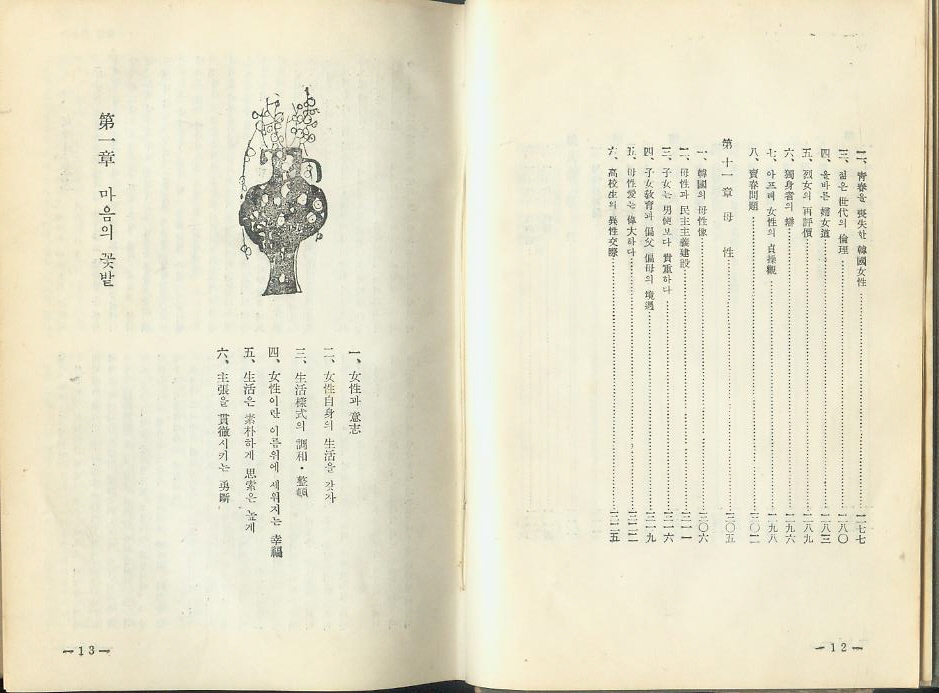 二、靑春을 喪失한 韓國女性……二七七
三、젊은 世代의 倫理……二八〇
四、올바른 婦女道……二八三
五、烈女의 再評價……二八九
六、獨身者의 辯……二九六
七、아프레 女性의 貞操觀……二九八
八、賣春問題……三〇二
第十一章 母 性……三〇五
一、韓國의 母性像……三〇六
二、母性과 民主主義建設……三一一
三、子女는 男便보다 貴重하다……三一六
四、子女敎育과 偏父 偏母의 境遇……三一九
五、母性愛는 偉大하다……三二二
六、高校生의 異性交際……三二五
—12—
第一章 마음의 꽃밭
一、女性과 意志
二、女性自身의 生活을 갖자
三、生活樣式의 調和·整頓
四、女性이란 이름위에 세워지는 幸福
五、生活은 素朴하게 思索은 높게
六、主張을 貫徹시키는 勇斷
—13—